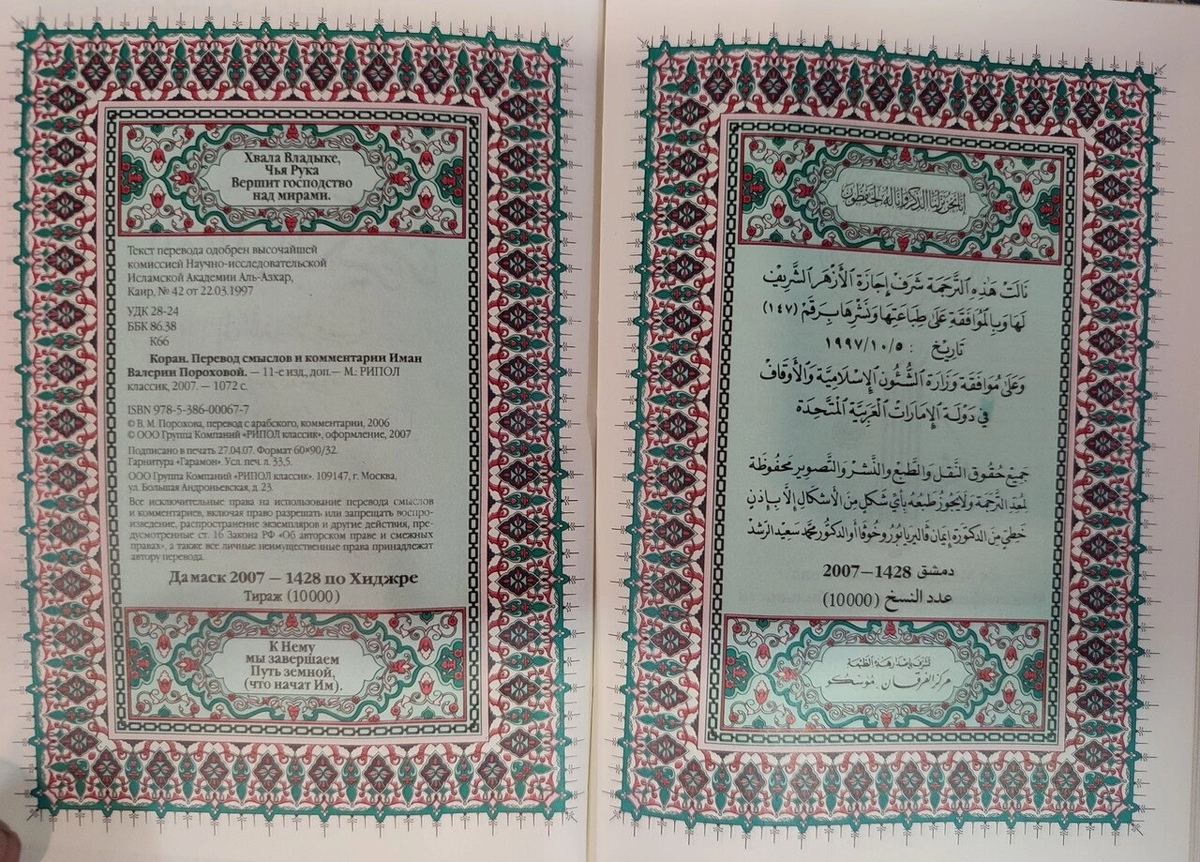 Хвала Владыке,
Чья Рука
Вершит господство
над мирами.
Текст перевода одобрен высочайшей
комиссией Научно-исследовательской
Исламской Академии Аль-Азхар,
Каир, № 42 от 22.03.1997
УДК 28-24
ББК 86.38
К66
Коран. Перевод смыслов и комментарии Иман
Валерии Пороховой. — 11-е изд., доп.— М.: РИПОЛ
классик, 2007. — 1072 с.
ISBN 978-5-386-00067-7
© В. М. Порохова, перевод с арабского, комментарии, 2006
© ООО Группа Компаний «РИПОЛ классик», оформление, 2007
Подписано в печать 27.04.07. Формат 60×90/32.
Гарнитура «Гарамон». Усл. печ. л. 33,5.
ООО Группа Компаний «РИПОЛ классик». 109147, г. Москва,
ул. Большая Андроньевская, д. 23.
Все исключительные права на использование перевода смыслов
и комментариев, включая право разрешать или запрещать воспро-
изведение, распространение экземпляров и другие действия, пре-
дусмотренные ст. 16 Закона РФ «Об авторском праве и смежных
правах», а также все личные неимущественные права принадлежат
автору перевода.
Дамаск 2007 — 1428 по Хиджре
Тираж (10000)
К Нему
мы завершаем
Путь земной,
(что начат Им).
إنا نحن نزلنا الذكر وإنا له لحافظون
نَالَتْ هٰذِهِ التَّرْجَمَة شَرَفَ إِجَازَة الأَزْهَر الشَّرِيْف
لَهَا وَبِالمُوَافَقَةِ عَلىٰ طِبَاعَتِهَا وَنَشْرِهَا بِرَقَمْ (١٤٧)
تَارِيْخ : ١٩٩٧/١٠/٥
وَعَلىٰ مُوَافَقَة وَزَارَة الشُّئُون الإِسْلَامِيَّة وَالأَوْقَاف
في دَوْلَة الإِمَارَات العَرَبِيَّة المُتَّحِدَة
جَمِيْع حُقُوق النَّقْل وَالطَّبْع وَالنَّشْر وَالتَّصْوِير مَحْفُوظَة
لمُعِدّ التَّرجَمَة وَلَا يَجُوز طَبْعُه بِأَيّ شَكْلٍ مِنَ الأَشْكَال إِلَّا بِإِذْنٍ
خَطِّيٍ مِنَ الدكتورَة إِيمَان فَاليريا بُورُوخُوفَا أو الدكتور محمَّد سَعِيْد الرشد
دمشق 1428—2007
عدد النسخ (10000)
تشرف بإصدار هذه الطبعة
مركز الفرقان . موسكو